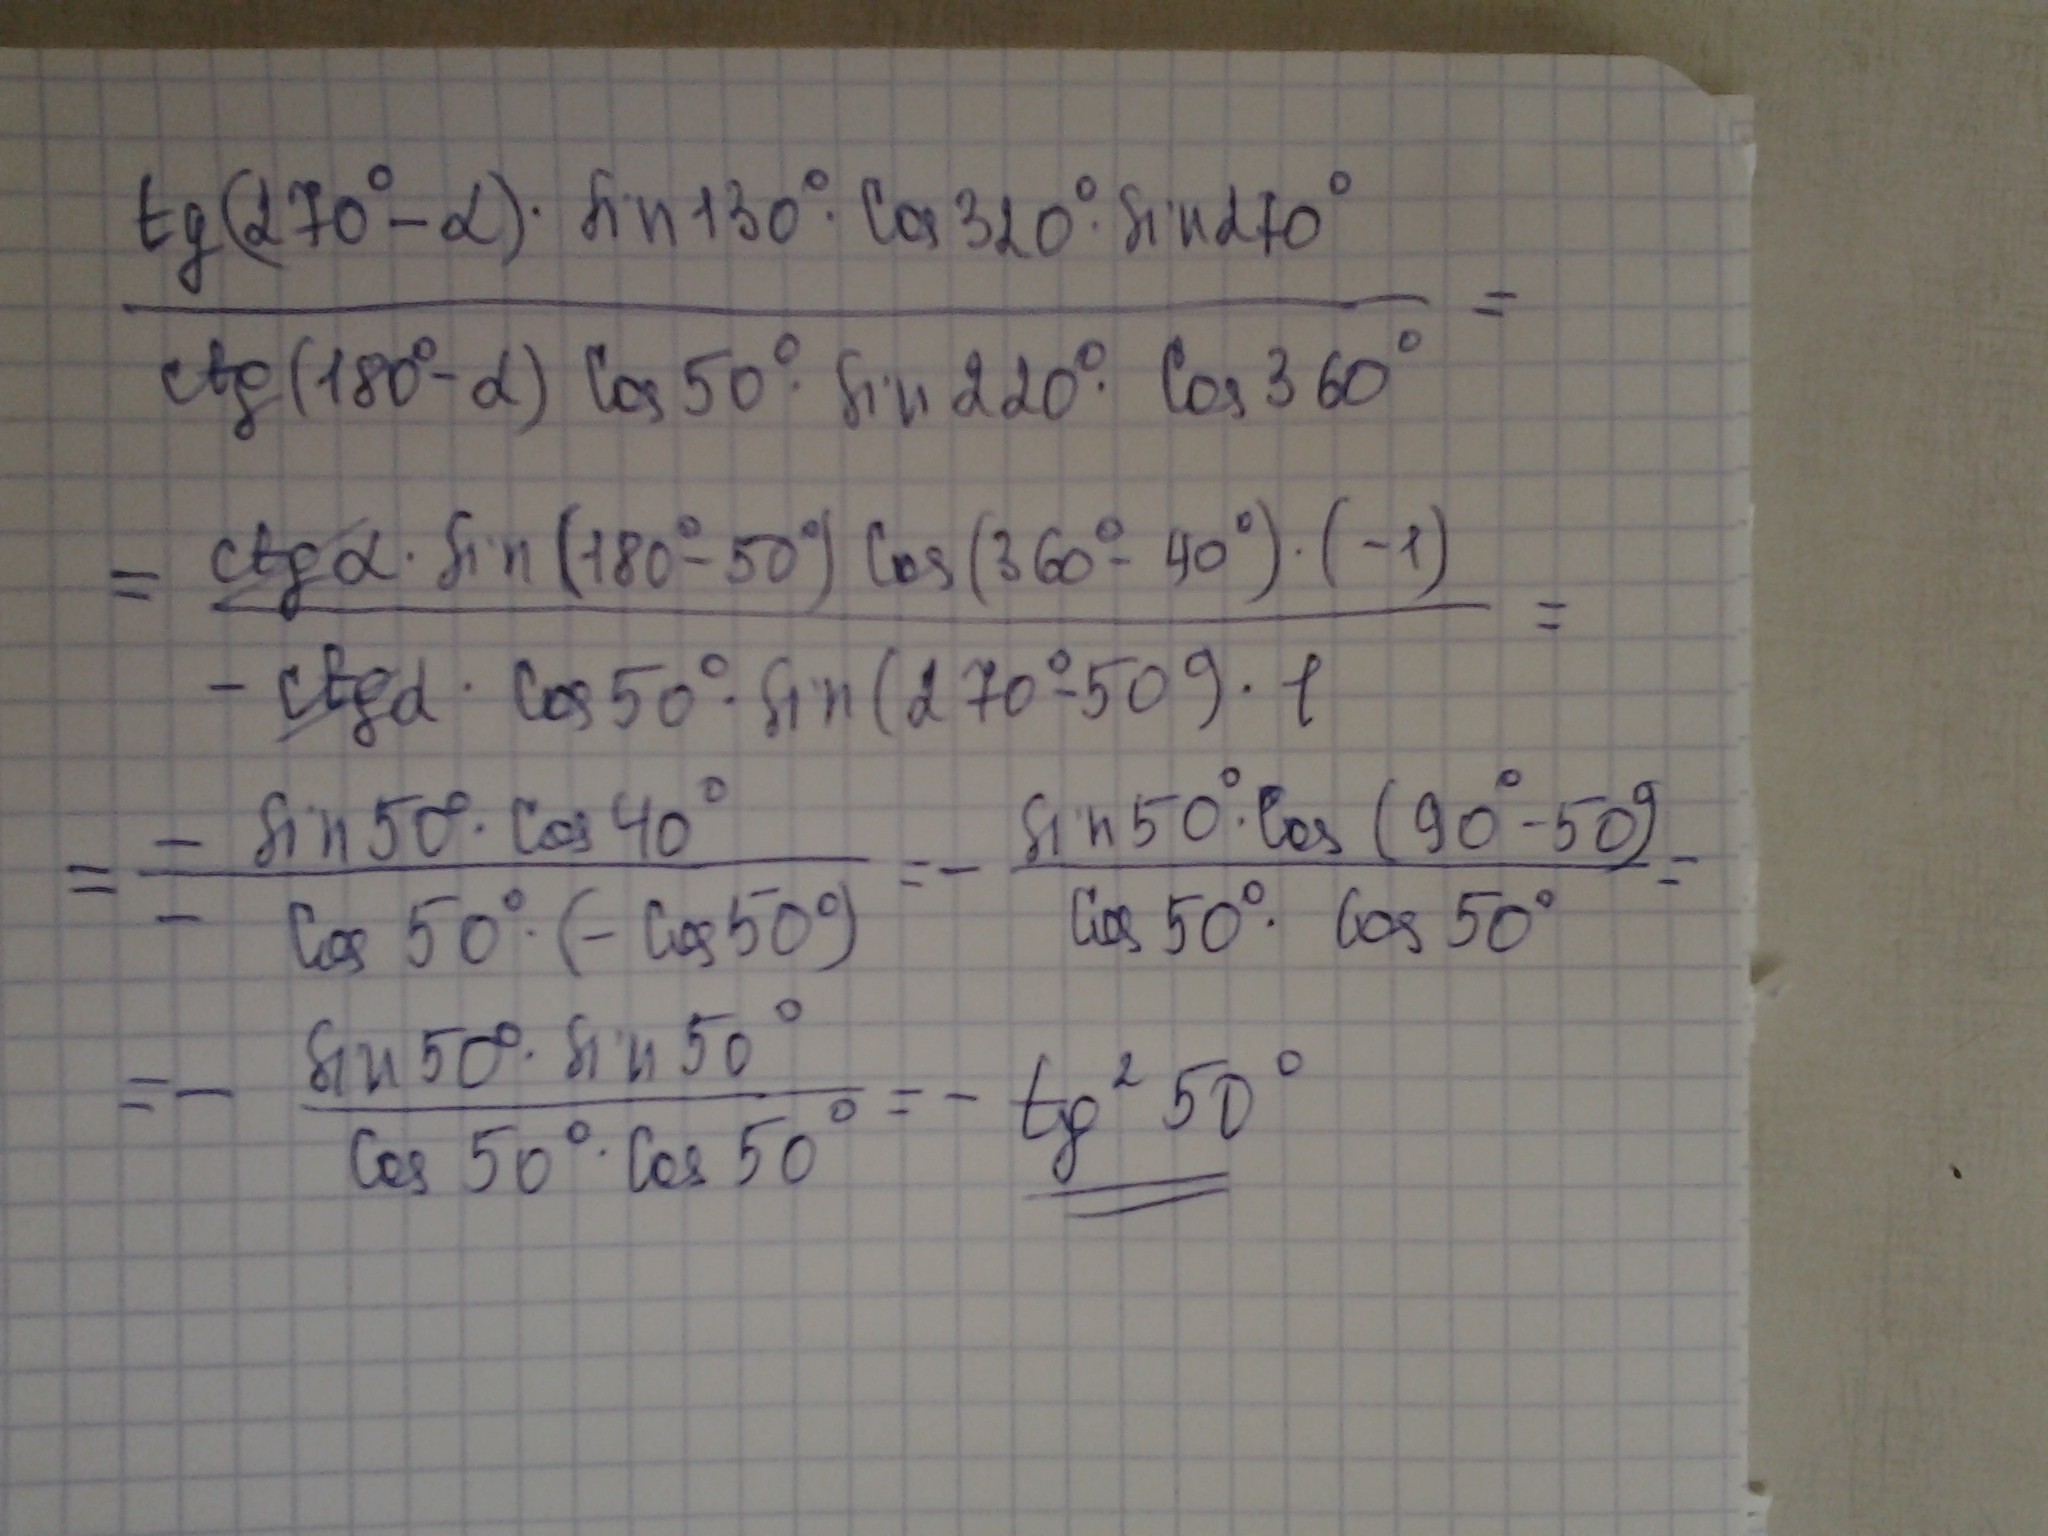 tg(270°-α)· sin130°· cos320°· sin270°
ctg(180°-α) cos50°· sin220°· cos360° =
= ctgα· sin(180°-50°) cos(360°-40°)·(-1)
-ctgα· cos50°· sin(270°-50°)· 1 =
= - sin50°· cos40° = - sin50°· cos(90°-50°) =
- cos50°·(-cos50°) cos50°· cos50°
= - sin50°· sin50° = - tg² 50°
cos50°· cos50°